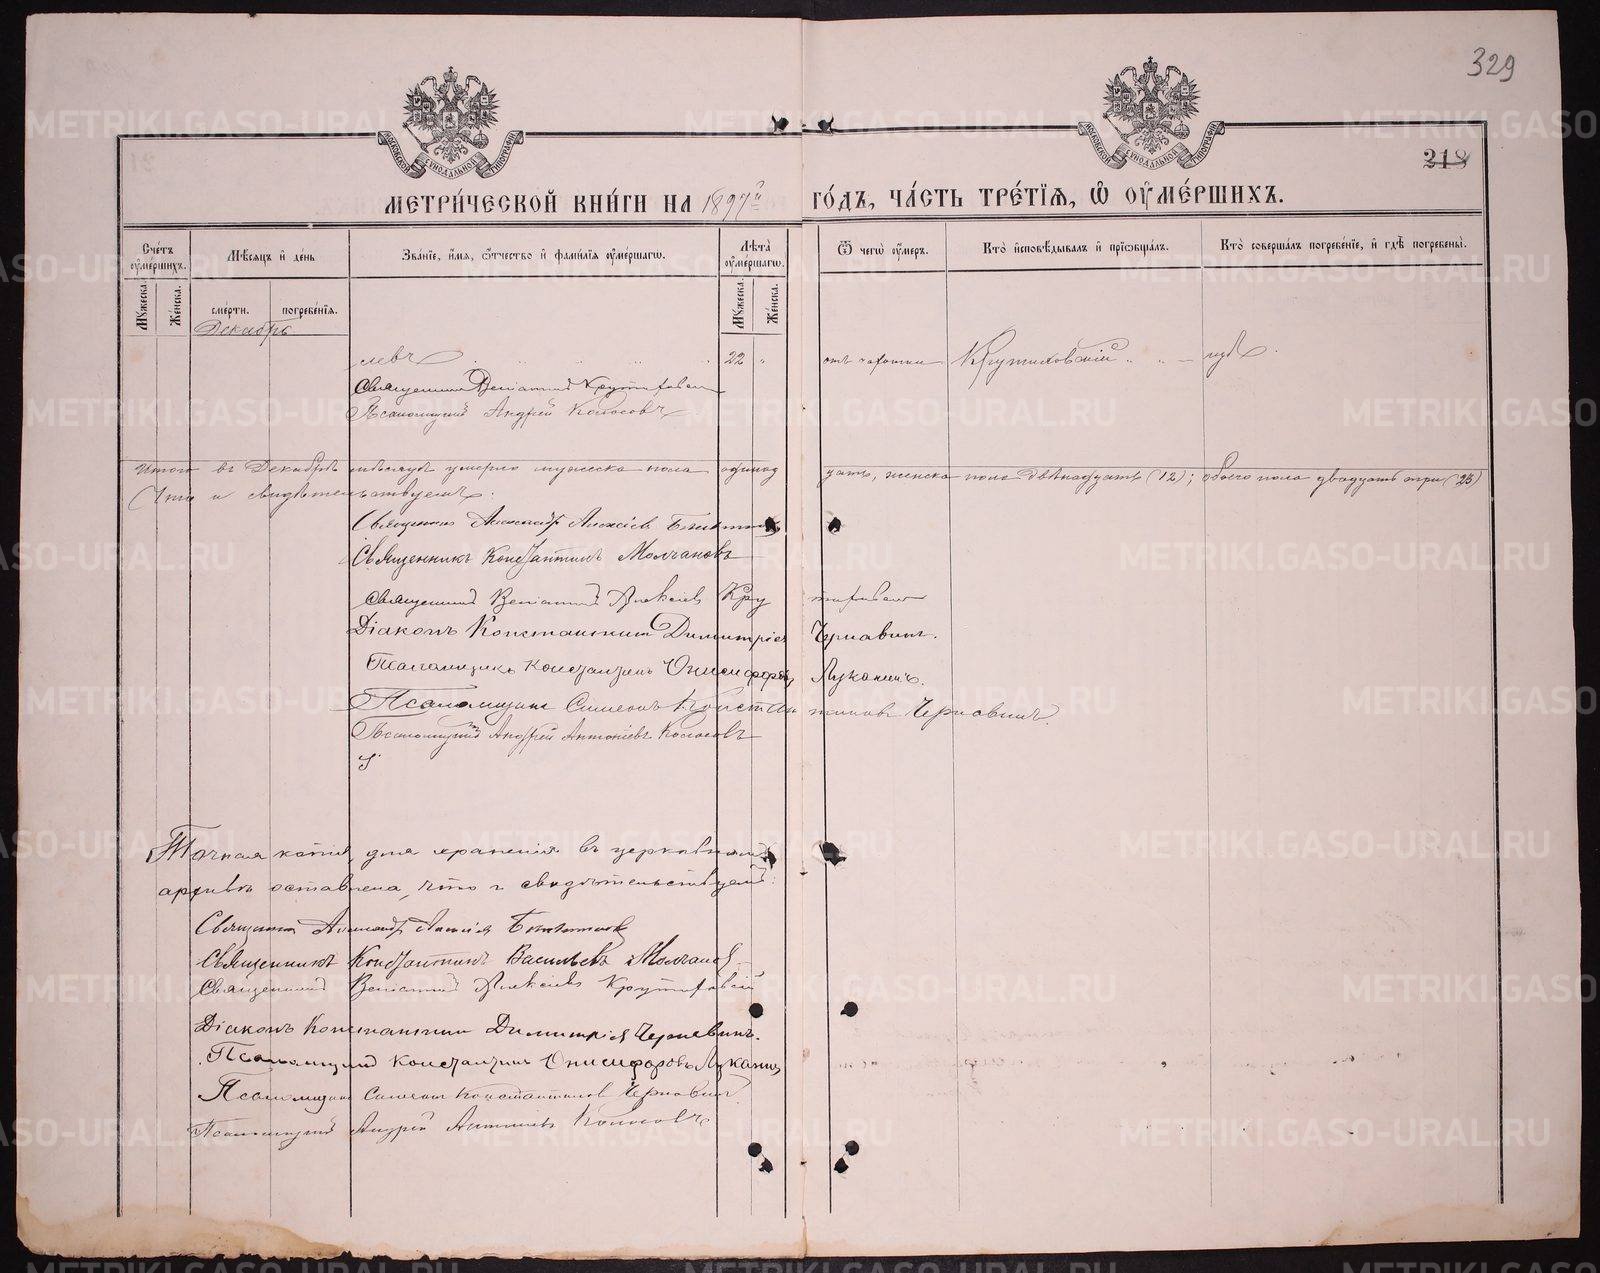 329
218
МЕТРИ́ЧЕСКОЙ КНИ́ГИ НА 1897й ГО́ДЪ, ЧА́СТЬ ТРЕ́ТІѦ, Ѡ ОУМЕ́РШИХЪ.
Сче́тъ оуме́ршихъ.
Мѣ́сяцъ и де́нь
Зва́ніе, и́мѧ, ѻ́тчество и фами́лїѧ оуме́ршагѡ.
Лѣта̀ оуме́ршагѡ.
Ѿ чегѡ̀ оу́меръ.
Кто̀ и҆сповѣ́дывалъ и҆ прїѡбща́лъ.
Кто̀ соверша́лъ погребе́нїе, и҆ гдѣ̀ погребены̀.
Му́жеска.
Же́нска.
сме́рти.
погребе́нїѧ.
Му́жеска.
Же́нска.
Декабрь
левъ 22 " отъ чахотки Крутиховскій
Священникъ Веніаминъ Крутиховскій
Псаломщикъ Андрей Колосовъ
Итого въ Декабрѣ мѣсяцѣ умерло мужеска пола одинад цать, женска пола двѣнадцать (12); обоего пола двадцать три (23)
Что и свидѣтельствуемъ:
Священникъ Александръ Алексіевъ
Священникъ Константинъ Молчановъ
Священникъ Веніаминъ Алексіевъ Крутиховскій
Діаконъ Константинъ Димитріевъ Чернавинъ.
Псаломщикъ Константинъ Онисифоровъ Луканинъ.
Псаломщикъ Симеонъ Константиновъ Чернавинъ.
Псаломщикъ Андрей Антоніевъ Колосовъ
Точная копія для храненія въ церковномъ
архивѣ оставлена, что и свидѣтельствуемъ:
Священникъ Александръ Алексіевъ
Священникъ Константинъ Васильевъ Молчановъ
Священникъ Веніаминъ Алексіевъ Крутиховскій
Діаконъ Константинъ Димитріевъ Чернавинъ.
Псаломщикъ Константинъ Онисифоровъ Луканинъ
Псаломщикъ Симеонъ Константиновъ Чернавинъ.
Псаломщикъ Андрей Антоніевъ Колосовъ
METRIKI.GASO-URAL.RU